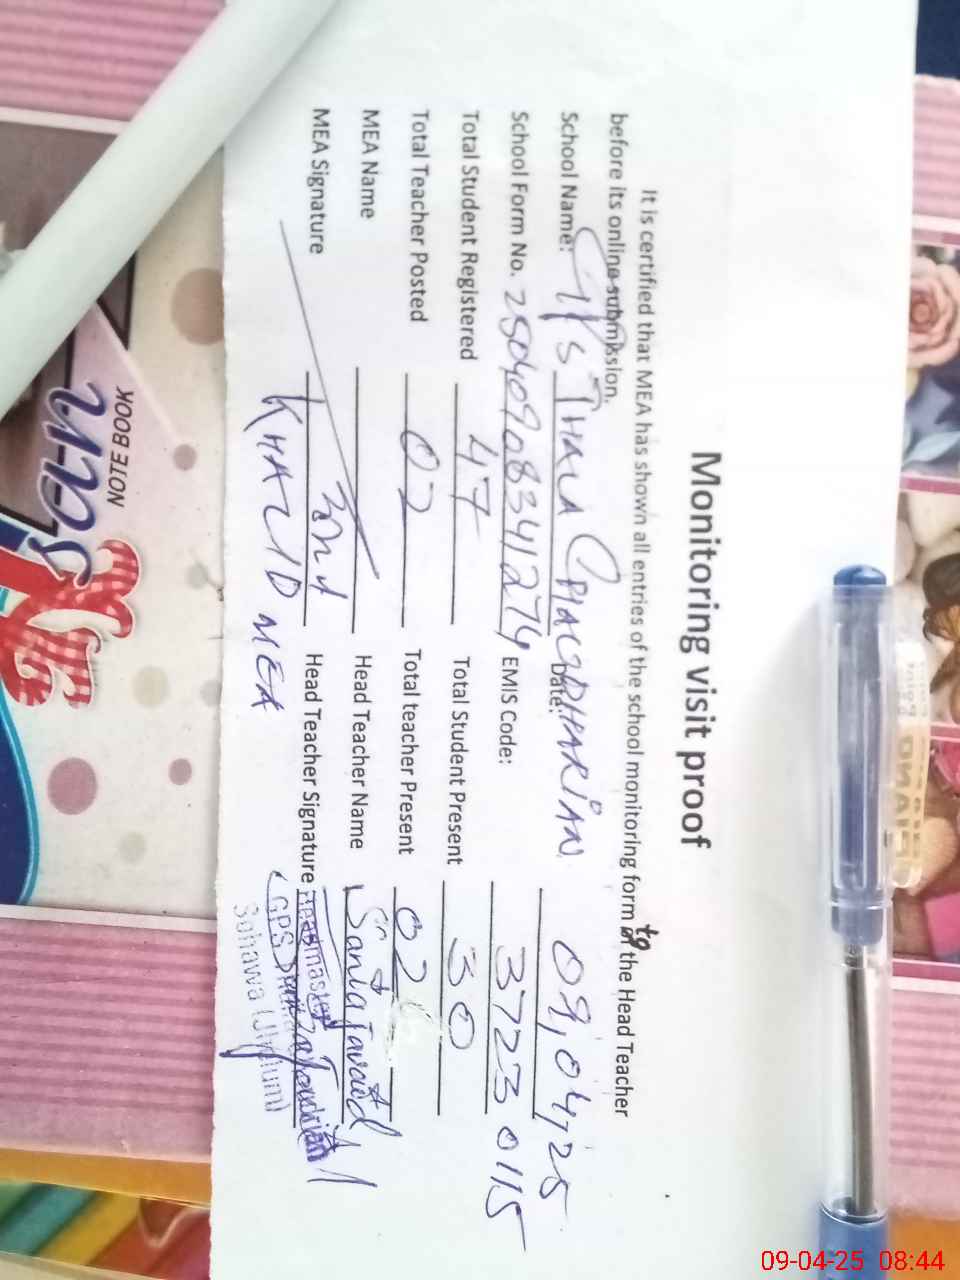 Monitoring visit proof
It is certified that MEA has shown all entries of the school monitoring form to the Head Teacher
before its online submission.
School Name: Date: 09,04,25
School Form No. EMIS Code: 37230115
Total Student Registered 47 Total Student Present 30
Total Teacher Posted 02 Total teacher Present 02
MEA Name Head Teacher Name Sania Javaid
MEA Signature Head Teacher Signature
KHALID MEA
Headmaster
GPS
Sohawa (Jhelum)
NOTEBOOK
PIANO
09-04-25 08:44